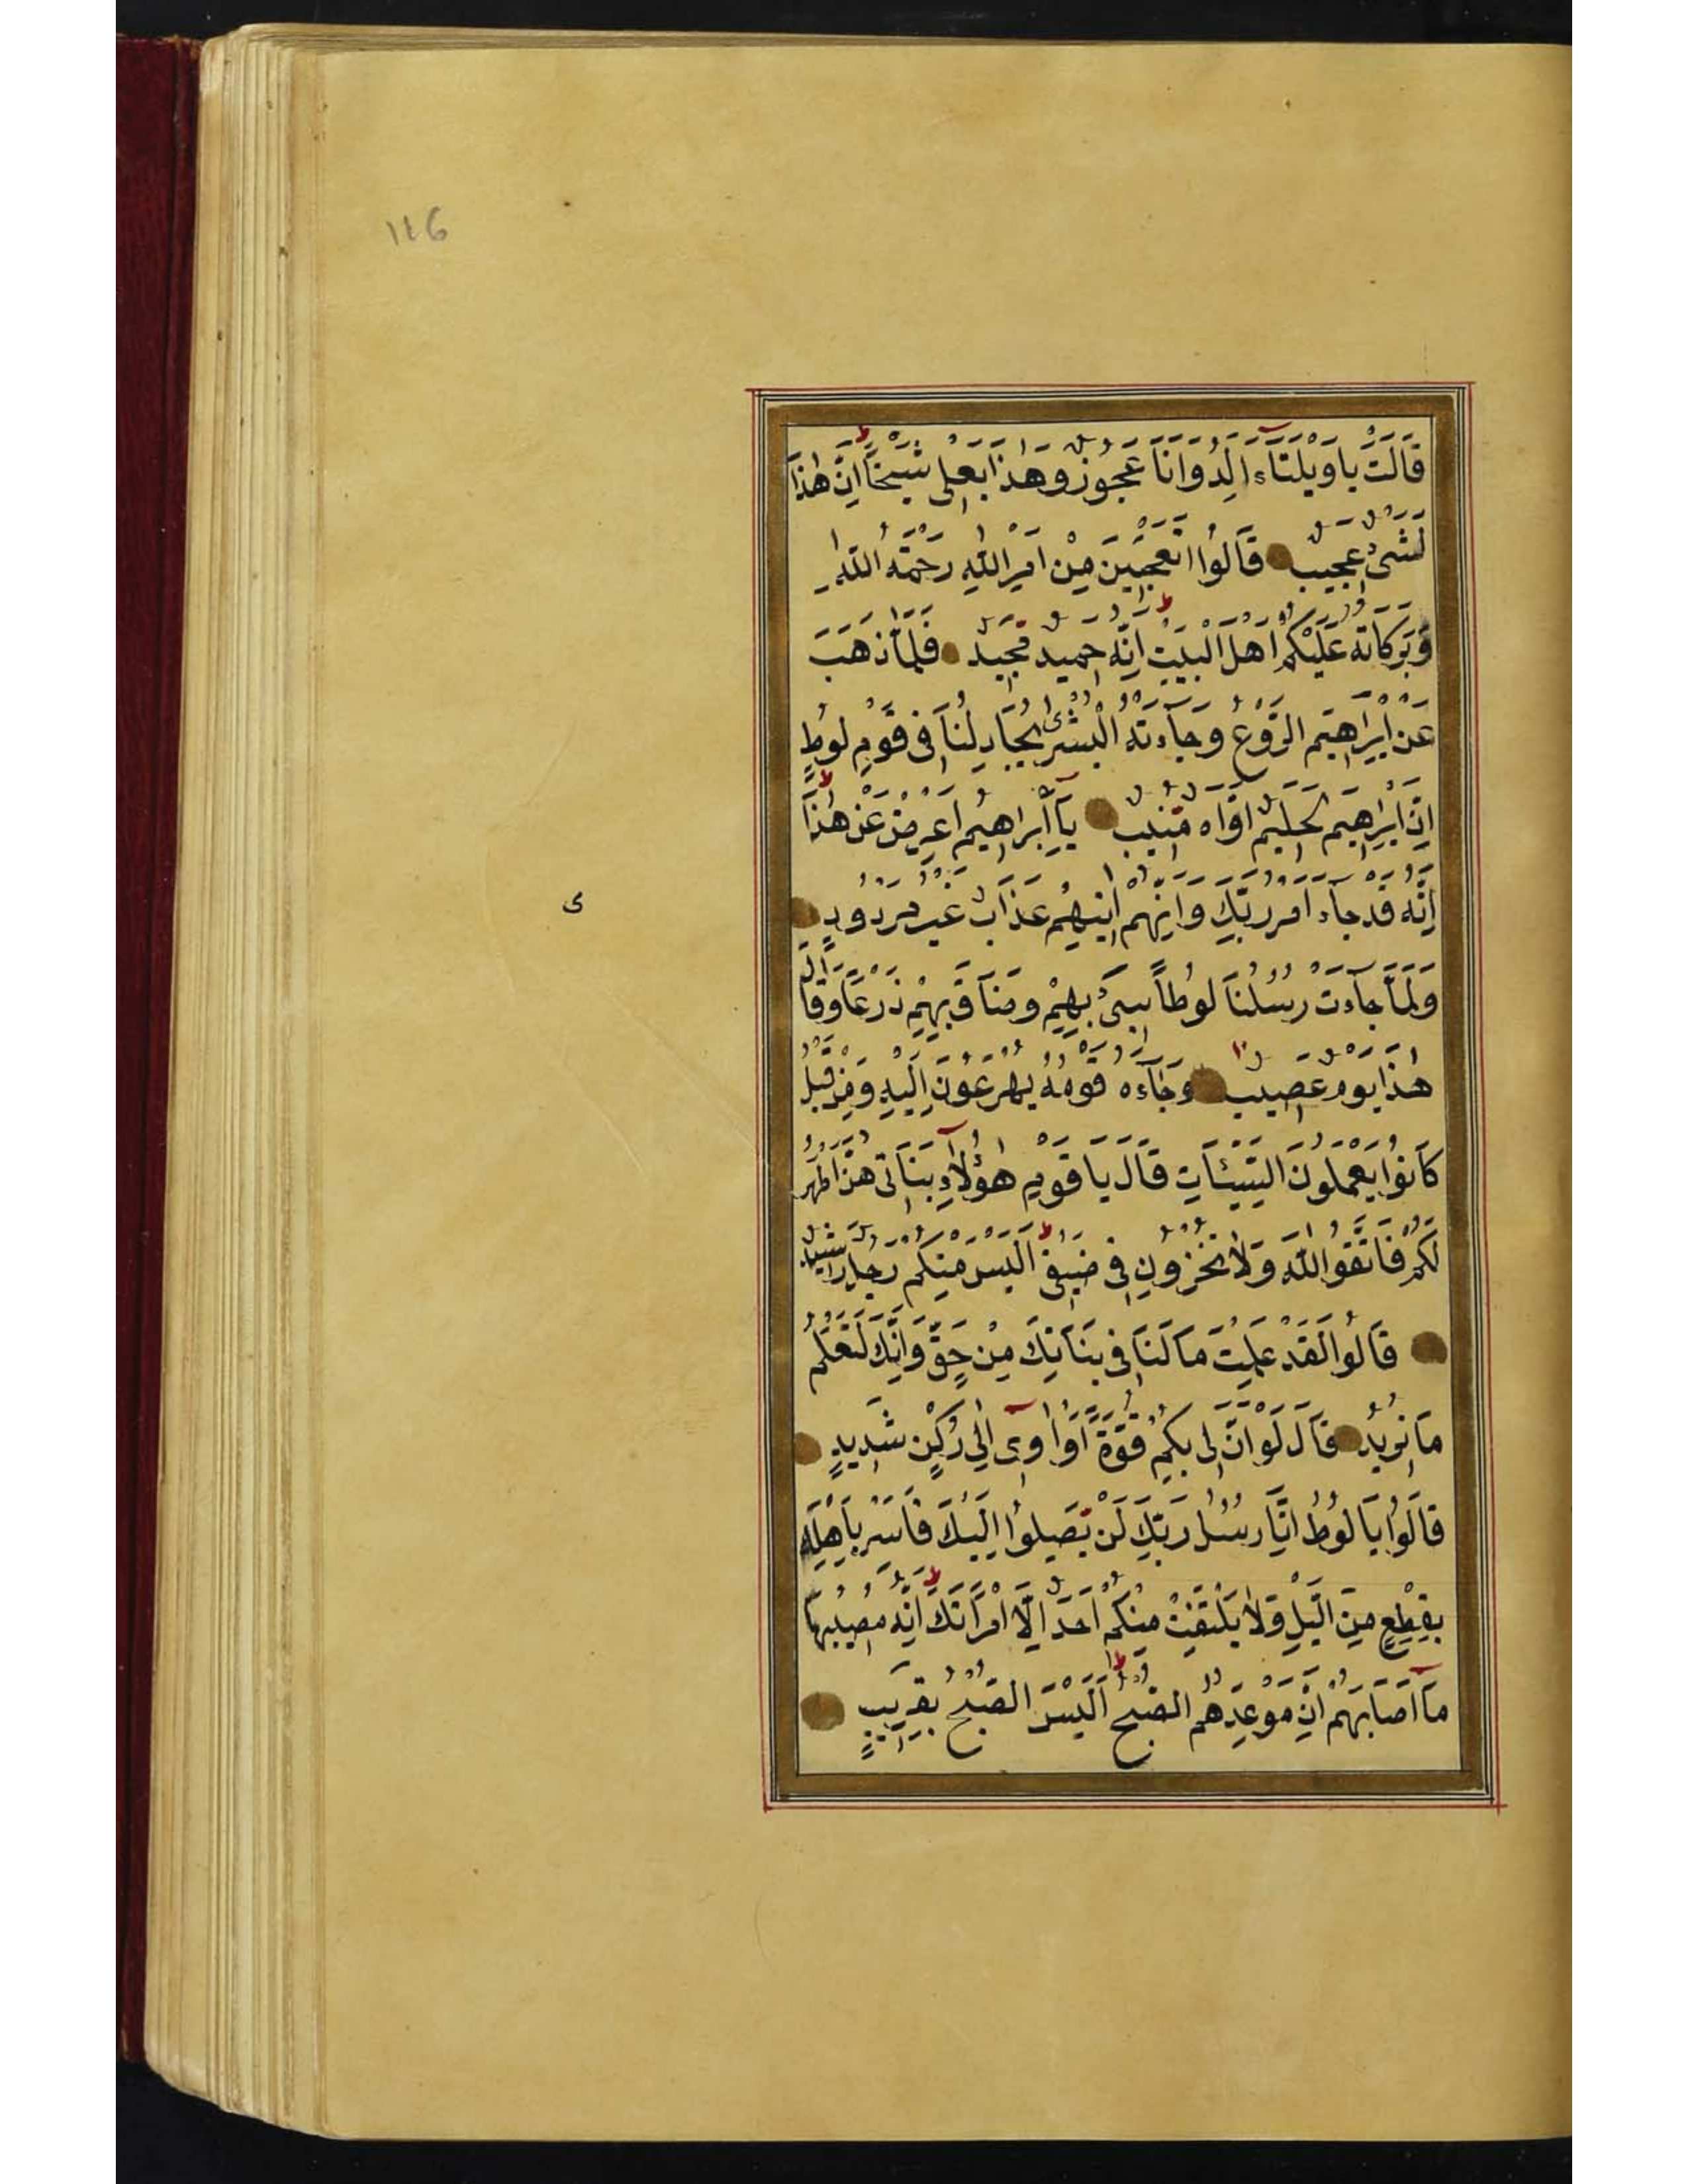 ١٤6
قَالَتْ يَا وَيْلَتَآءَ اَلِدُ وَاَنَا عَجُوزٌ وَهٰذَا بَعْلِي شَيْخًا اِنَّ هٰذَا
لَشَيْءٌ عَجِيبٌ قَالُوا اَتَعْجَبِينَ مِنْ اَمْرِ اللّٰهِ رَحْمَةُ اللّٰهِ
وَبَرَكَاتُهُ عَلَيْكُمْ اَهْلَ الْبَيْتِ اِنَّهُ حَمِيدٌ مَجِيدٌ فَلَمَّا ذَهَبَ
عَنْ اِبْرَاهِيمَ الرَّوْعُ وَجَآءَتْهُ الْبُشْرٰى يُجَادِلُنَا فِي قَوْمِ لُوطٍ
اِنَّ اِبْرَاهِيمَ لَحَلِيمٌ اَوَّاهٌ مُنِيبٌ يَآ اِبْرَاهِيمُ اَعْرِضْ عَنْ هٰذَا
اِنَّهُ قَدْ جَآءَ اَمْرُ رَبِّكَ وَاِنَّهُمْ اٰتِيهِمْ عَذَابٌ غَيْرُ مَرْدُودٍ
ى
وَلَمَّا جَآءَتْ رُسُلُنَا لُوطًا سِيءَ بِهِمْ وَضَاقَ بِهِمْ ذَرْعًا وَقَالَ
هٰذَا يَوْمٌ عَصِيبٌ وَجَآءَهُ قَوْمُهُ يُهْرَعُونَ اِلَيْهِ وَمِنْ قَبْلُ
كَانُوا يَعْمَلُونَ السَّيِّئَاتِ قَالَ يَا قَوْمِ هٰؤُلَآءِ بَنَاتِي هُنَّ اَطْهَرُ
لَكُمْ فَاتَّقُوا اللّٰهَ وَلَا تُخْزُونِ فِي ضَيْفِي اَلَيْسَ مِنْكُمْ رَجُلٌ رَشِيدٌ
قَالُوا لَقَدْ عَلِمْتَ مَا لَنَا فِي بَنَاتِكَ مِنْ حَقٍّ وَاِنَّكَ لَتَعْلَمُ
مَا نُرِيدُ قَالَ لَوْ اَنَّ لِي بِكُمْ قُوَّةً اَوْ اٰوِي اِلٰى رُكْنٍ شَدِيدٍ
قَالُوا يَا لُوطُ اِنَّا رُسُلُ رَبِّكَ لَنْ يَصِلُوا اِلَيْكَ فَاَسْرِ بِاَهْلِكَ
بِقِطْعٍ مِنَ الَّيْلِ وَلَا يَلْتَفِتْ مِنْكُمْ اَحَدٌ اِلَّا امْرَاَتَكَ اِنَّهُ مُصِيبُهَا
مَآ اَصَابَهُمْ اِنَّ مَوْعِدَهُمُ الصُّبْحُ اَلَيْسَ الصُّبْحُ بِقَرِيبٍ